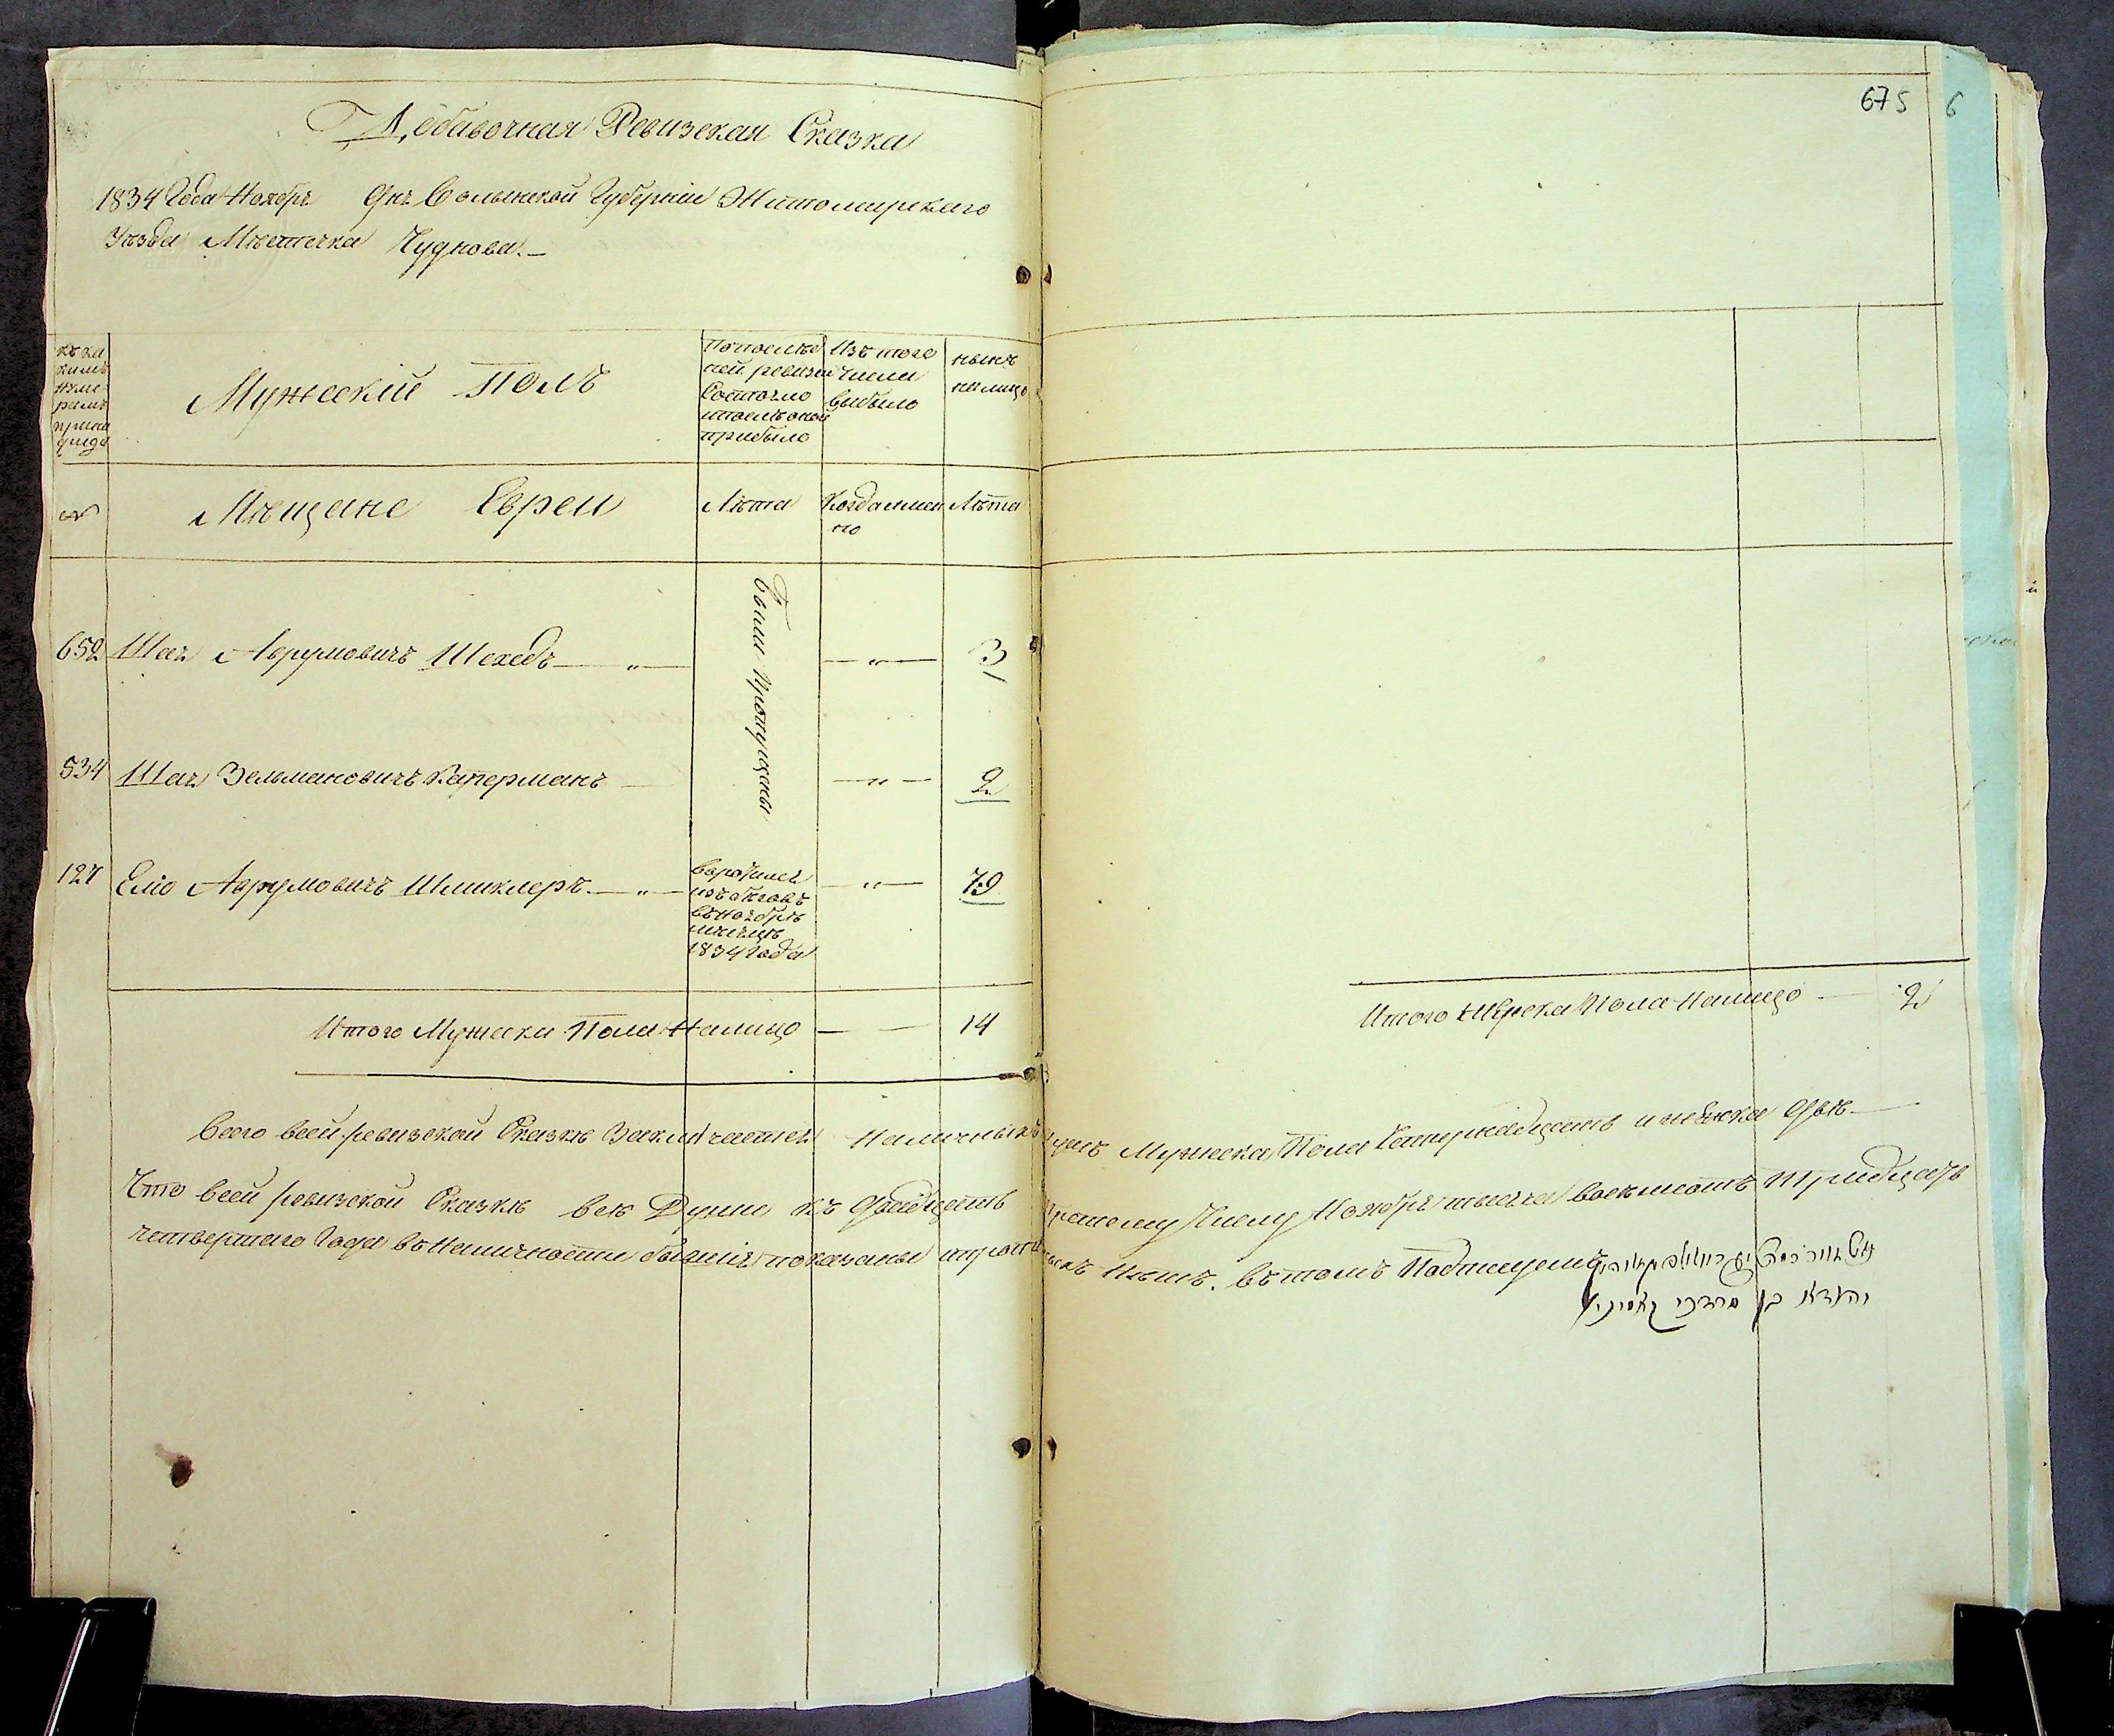 675 6
Добавочная Ревизская Сказка
1834 Года Ноября дня Волынской Губернии Житомирского
Уезда Местечка Чуднова. —
къ ка
кимъ
нуме
рамъ
прина
дледа
Мужескій Полъ
По послѣд
ней ревизи
Состояло
и послѣ оной
прибыло
Изъ того
числа
выбыло
нынѣ
налицо
№
Мѣщане Евреи
Лѣта
Когда имен
но
Лѣта
Были пропущены
652 Шая Аврумовичъ Шехедъ — „ — — „ — 3
534 Шая Зельмановичъ Каперманъ — — „ — 2
127 Еліо Аврумовичъ Шмиклеръ. — „ —
воротился
изъ бѣговъ
въ ноябрѣ
мѣсяцѣ
1834 Года
— „ — 79
Итого Мужеска Пола Налицо — — 14
Итого Женска Пола Налицо — 2
Всего всей ревизской Сказкѣ Заключается Наличныхъ Душъ Мужеска Пола Четырнадцать и женска двѣ —
Что всей ревизской Сказкѣ все Души къ двадцать Третьему Числу Ноября тысяча восемьсотъ тридцать
четвертаго Года въ Наличности бывшія показаны и пропи Нѣтъ. въ томъ Подписуемъ
יהודא בן מרדכי